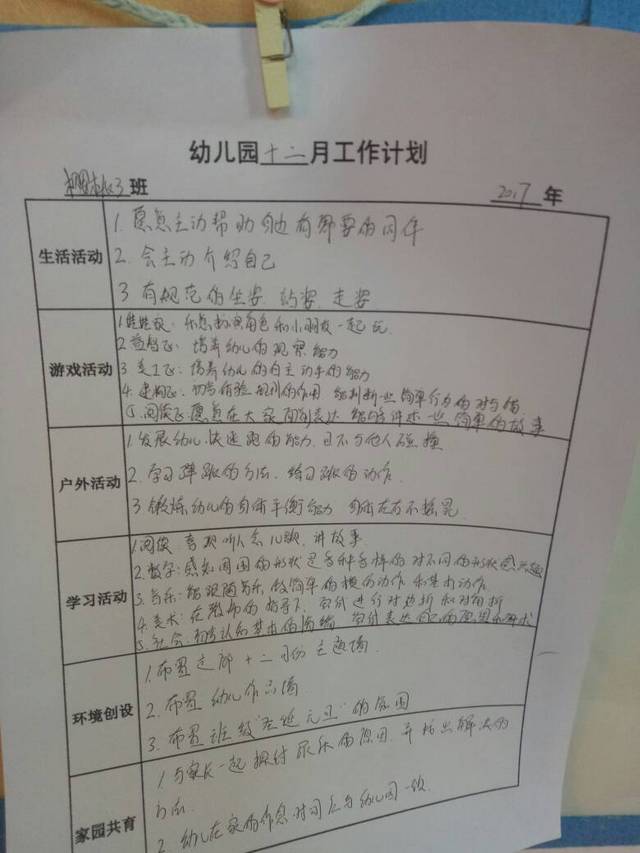 幼儿园十二月工作计划
班 2017年
生活活动
1. 愿意主动帮助有需要的同伴
2. 会主动介绍自己
3 有规范的坐姿 站姿 走姿
游戏活动
1 娃娃家：乐意扮演角色和小朋友一起玩.
2 益智区：培养幼儿的观察能力
3 美工区：培养幼儿的自主动手的能力
4. 建构区：规则的作用 能判断一些简单行为的对与错
5. 阅读区 愿意在大家面前表达 能讲述一些简单的故事
户外活动
1. 发展幼儿快速跑的能力, 且不与他人碰撞
2. 学习蹲跳的方法. 练习跳的动作.
3 锻炼幼儿的身体平衡能力 身体左右不摇晃.
学习活动
1. 阅读 喜欢听念儿歌. 讲故事
2. 数学: 感知周围的形状是多种多样的 对不同的形状感兴趣
3. 音乐: 能跟随音乐做简单的模仿动作和基本动作
4. 美术: 在教师的指导下, 进行对边折和对角折
5. 社会: 基本的情绪, 表达自己的愿望和需求
环境创设
1. 布置走廊十二月份主题墙
2. 布置幼儿作品墙
3. 布置班级"元旦"的氛围
家园共育
1. 与家长一起探讨尿床的原因, 并找出解决的
方法.
2. 幼儿在家的作息时间应与幼儿园一致.